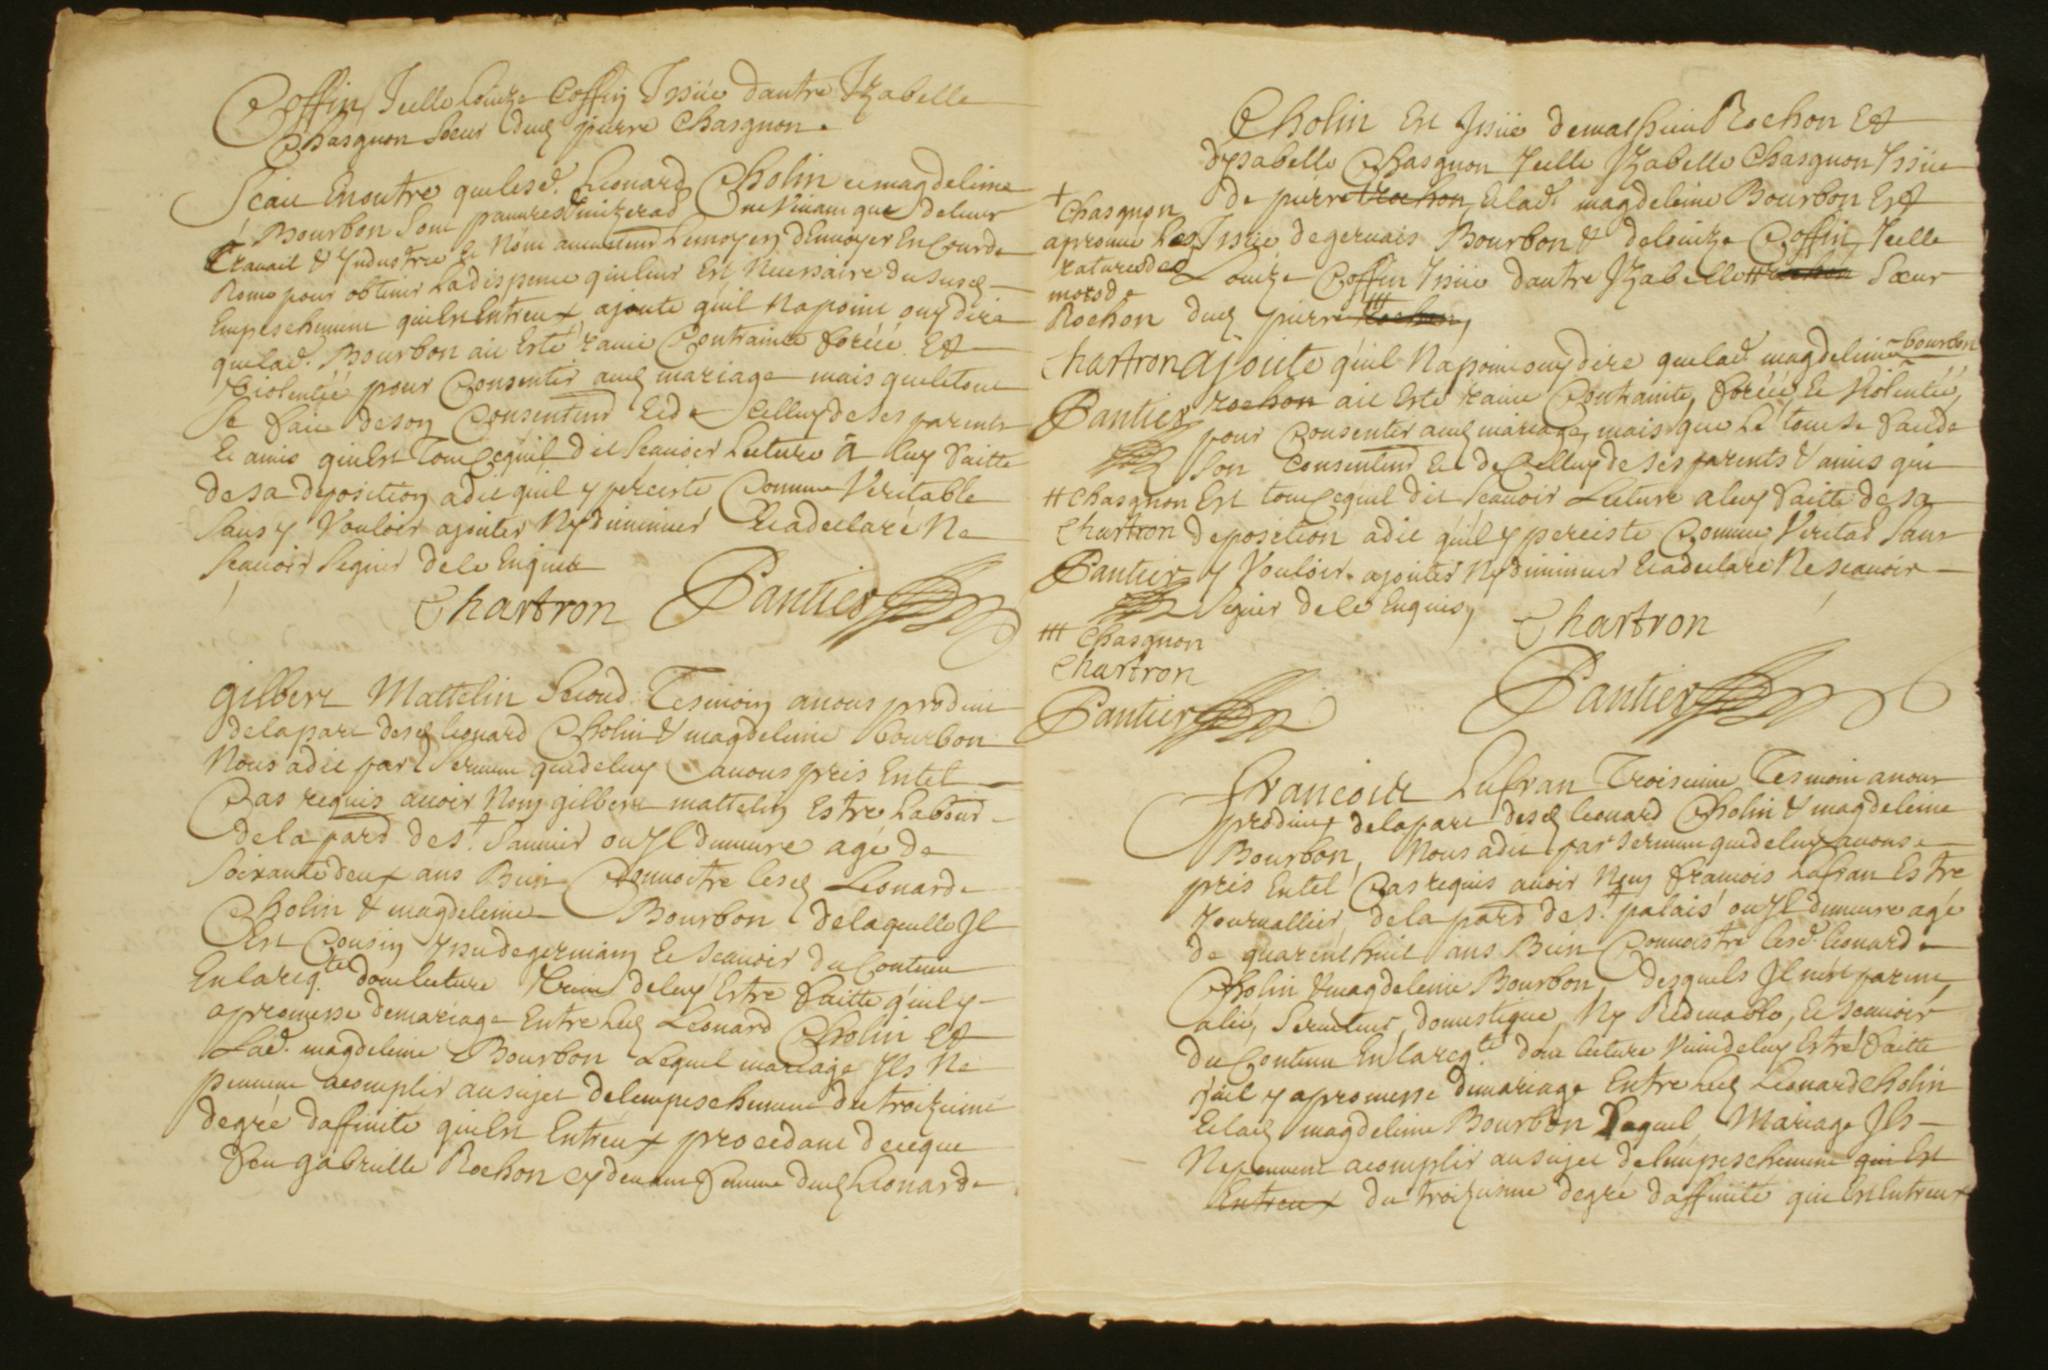 Coffin, Icelle Louize Coffin Issüe dautre Izabelle
Chasgnon Sœur dud pierre Chasgnon.
Scait Enoutre que lesd. Leonard Cholin et magdeleine
Bourbon Sont pauvres & mizerab ne Vivant que de leur
travail & Industrie et Nont aucunement Lemoyen dEnvoyer En Cour de
Rome pour obtenir La dispence qui leur Est Necessaire du susd
Empeschement qui Est Entreux ajoute quil Na point ouy dire
que lad. Bourbon ait Esté ravie Contrainte forcée Et
Violentée pour Consentir aud mariage mais que le tout
Se fait de son Consentemt Et de Celluy de ses parents
Et amis qui Est Tout Cequil dit Scauoir Lecture A Luy faitte
de sa deposition a dit quil y perciste Comme Veritable
Sans y Vouloir ajouter Ny diminuer Et a declaré Ne
Scauoir Signer de le Enquis
Chartron Pantier
gilbert Mattelin Second Tesmoin a nous produit
de la part desd Leonard Cholin & magdeleine Bourbon
Nous a dit par Serment que de luy auons pris Entel
Cas requis auoir Nom gilbert mattelin Estre Labour
de la parr de st. Saunier ou Il demeure agé de
Soixante deux ans Bien Connoitre lesd Leonard
Cholin & magdeleine Bourbon de laquelle Il
Est Cousin Issu de germain Et Scauoir du Contenu
En la reqte dont lecture Vient de luy Estre faitte quil y
a promesse de mariage Entre Led Leonard Cholin Et
Lad. magdeleine Bourbon Lequel mariage Ils Ne
peuvent acomplir au sujet de lempeschement du troizieme
degré daffinité qui Est Entreux procedant de ceque
feu gabrielle Rochon cy devant femme dud Leonard
Cholin Est Issüe de mathieu Rochon Et
dysabelle Chasgnon Icelle Izabelle Chasgnon Issüe
de pierre rochon, Et lad. magdeleine Bourbon Est
Issüe de gervais Bourbon & de Louize Coffin, Icelle
Louize Coffin Issüe dautre Izabelle # rochon Sœur
dud pierre ### Rochon,
ajoute quil Na point ouy dire que lad. magdeleine bourbon
rochon ait Esté ravie Contrainte, forcée, Et Violentée,
pour Consentir aud mariage, mais que Le tout se fait de
Son Consentemt Et de Celluy de ses parents & amis qui
Est tout Cequil dit Scauoir Lecture a luy faitte de sa
deposition a dit quil y perciste Comme Veritab Sans
y Vouloir ajouter Ny diminuer Et a declaré Ne scauoir
Signer de le Enquis,
Chartron
Pantier
+
Chasgnon
aprouvé Les
ratures des
mots de
Rochon
Chartron
Pantier
# Chasgnon
Chartron
Pantier
### Chasgnon
Chartron
Pantier
Francois Lafran Troisieme Tesmoin a nous
produit de la part desd Leonard Cholin & magdeleine
Bourbon, Nous a dit par Serment que de luy auons
pris Entel Cas requis auoir Nom francois Lafran Estre
Journallier de la parr de st. palais ou Il demeure agé
de quarent huit ans Bien Connoistre lesd. Leonard
Cholin & magdeleine Bourbon, desquels Il nest parent,
alié, Seruiteur, domestique, Ny Redevable, Et Scauoir
du Contenu En la reqte dont lecture Vient de luy Estre faitte
quil y a promesse de mariage Entre Led Leonard Cholin
Et lad magdeleine Bourbon Lequel Mariage Ils
Ne peuvent acomplir au sujet de lempeschement qui Est
Entreux du troizieme degré daffinité qui Est Entreux